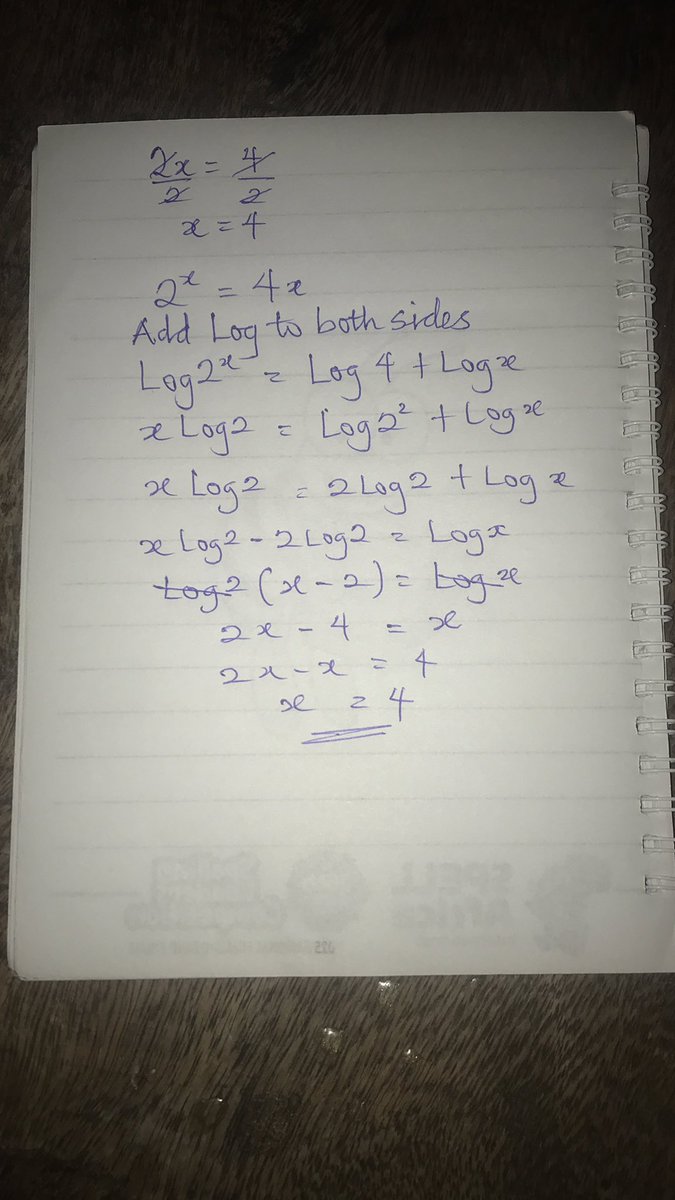 2x = 4
2 2
x = 4
2ˣ = 4x
Add Log to both sides
Log2ˣ = Log 4 + Logx
x Log2 = Log2² + Logx
x Log2 = 2Log2 + Log x
x Log2 - 2Log2 = Logx
Log2 (x - 2) = Log x
2x - 4 = x
2x - x = 4
x = 4
SPELL
Africa